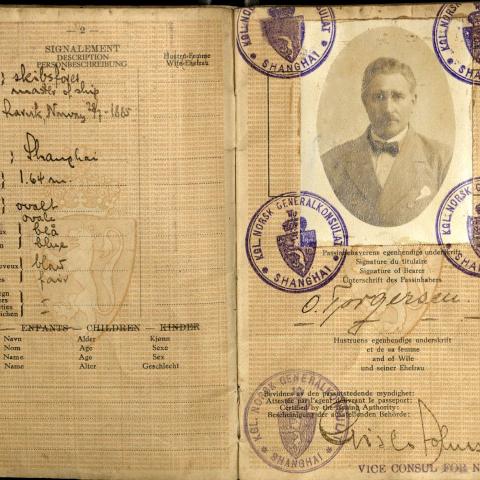 — 2 —
SIGNALEMENT
DESCRIPTION
PERSONBESCHREIBUNG
Hustru-Femme
Wife-Ehefrau
skibsfører
master of ship
Larvik, Norway 1865
Shanghai
1.64 m.
ovalt
ovale
blå
blue
fair
ENFANTS — CHILDREN — KINDER
Navn Alder Kjønn
Nom Age Sexe
Name Age Sex
Name Alter Geschlecht
KGL. NORSK GENERALKONSULAT
SHANGHAI
KGL. NORSK GENERALKONSULAT
SHANGHAI
KGL. NORSK GENERALKONSULAT
SHANGHAI
Passinnehaverens egenhendige underskrift
Signature du titulaire
Signature of Bearer
Unterschrift des Passinhabers
O. Torgersen
Hustruens egenhendige underskrift
et de sa femme
and of Wife
und seiner Ehefrau
Bevidnes av den passutstedende myndighet:
Attestée par l'agent délivrant le passeport:
Certified by the Issuing Authority:
Bescheinigung der ausstellenden Behörde:
GENERALKONSULAT
SHANGHAI
VICE CONSUL FOR N